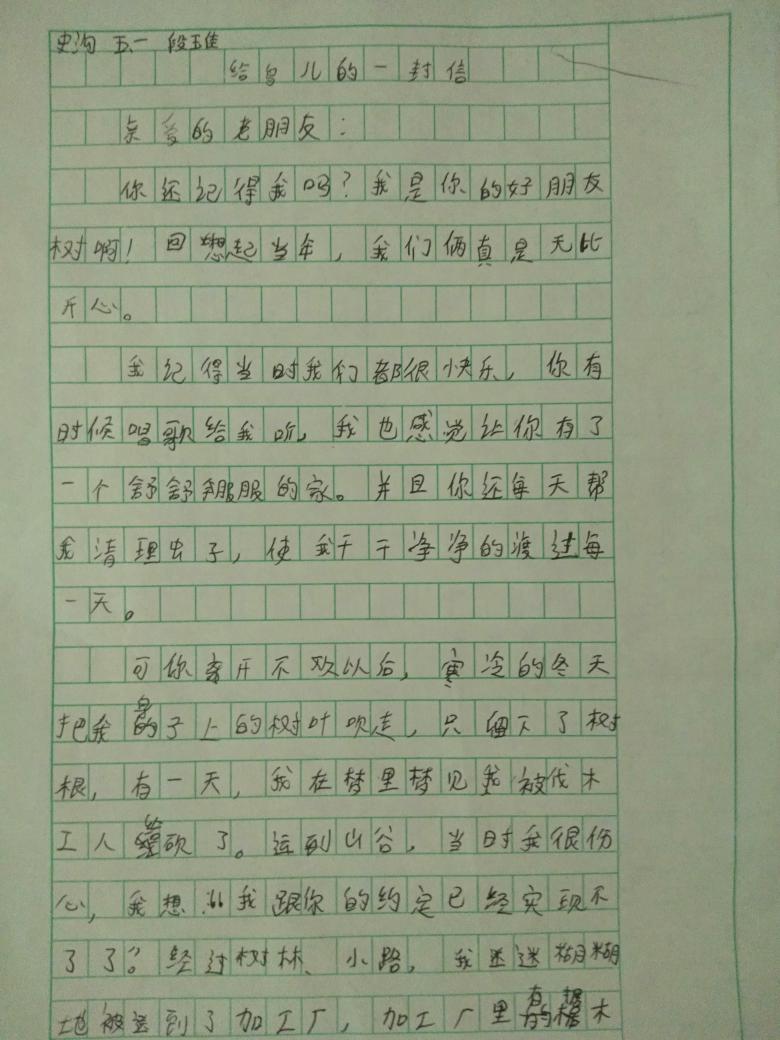 史沟 五一 段雅
给鸟儿的一封信
亲爱的老朋友：
你还记得我吗？我是你的好朋友
树啊！回想起当年，我们俩真是无比
开心。
我记得当时我们都很快乐，你有
时候唱歌给我听，我也感觉让你有了
一个舒舒服服的家。并且你还每天帮
我清理虫子，使我干干净净的渡过每
一天。
可你离开不久以后，寒冷的冬天
把我身子上的树叶吹走，只留下了树
根，有一天，我在梦里梦见我被伐木
工人砍了。运到山谷，当时我很伤
心，我想我跟你的约定已经实现不
了了？经过树林、小路，我迷迷糊糊
地被送到了加工厂，加工厂里有根木